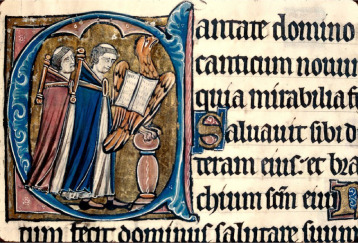 antate domino
canticum nouum
quia mirabilia fe
Saluauit sibi d
teram eius: et bra
chium scm eius
tum fecit dominus salutare suum